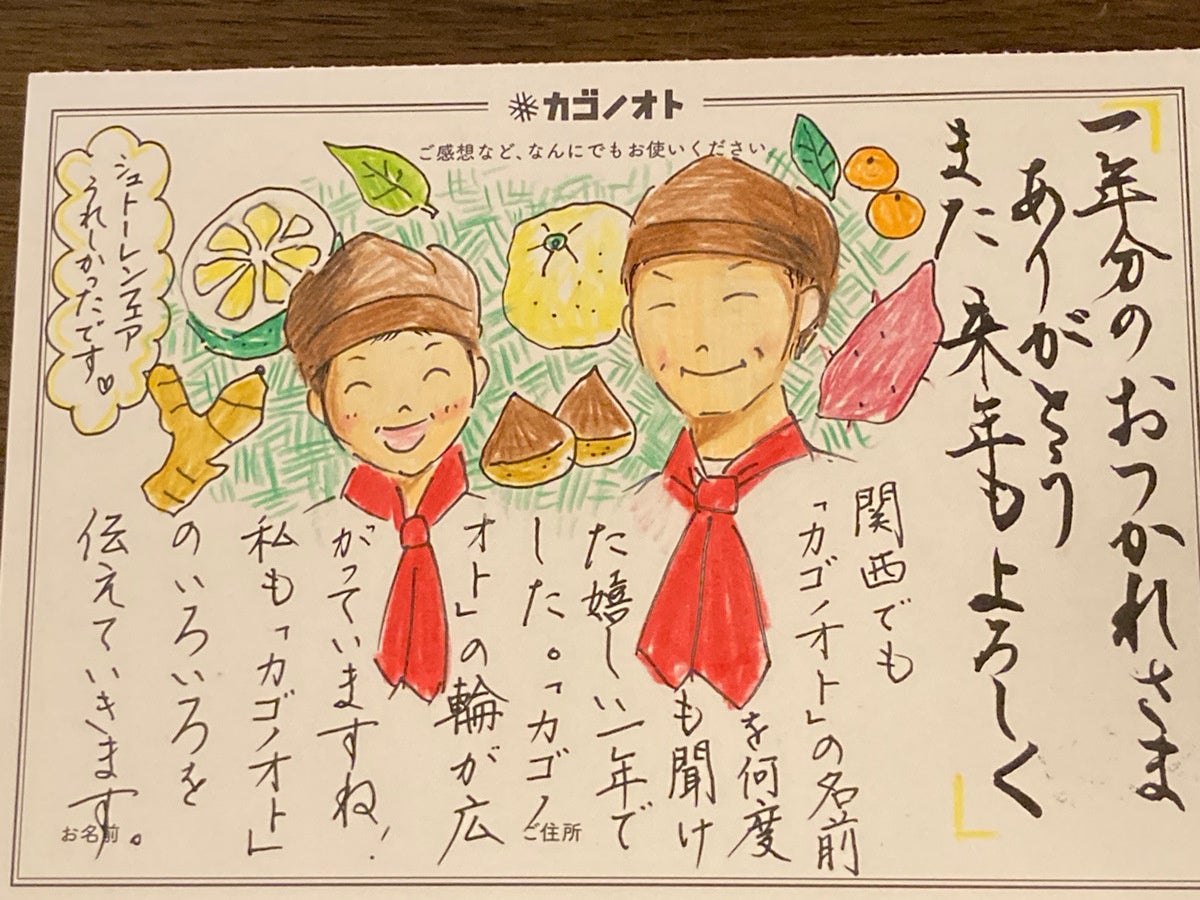 カゴノオト
ご感想など、なんにでもお使いください
「一年分のおつかれさま
ありがとう
また来年もよろしく」
関西でも
「カゴノオト」の名前
を何度
も聞け
た嬉しい一年で
した。「カゴノ
オト」の輪が広
がっていますね!
私も「カゴノオト」
のいろいろを
伝えていきます。
シュトーレンフェア
うれしかったです♡
お名前
ご住所